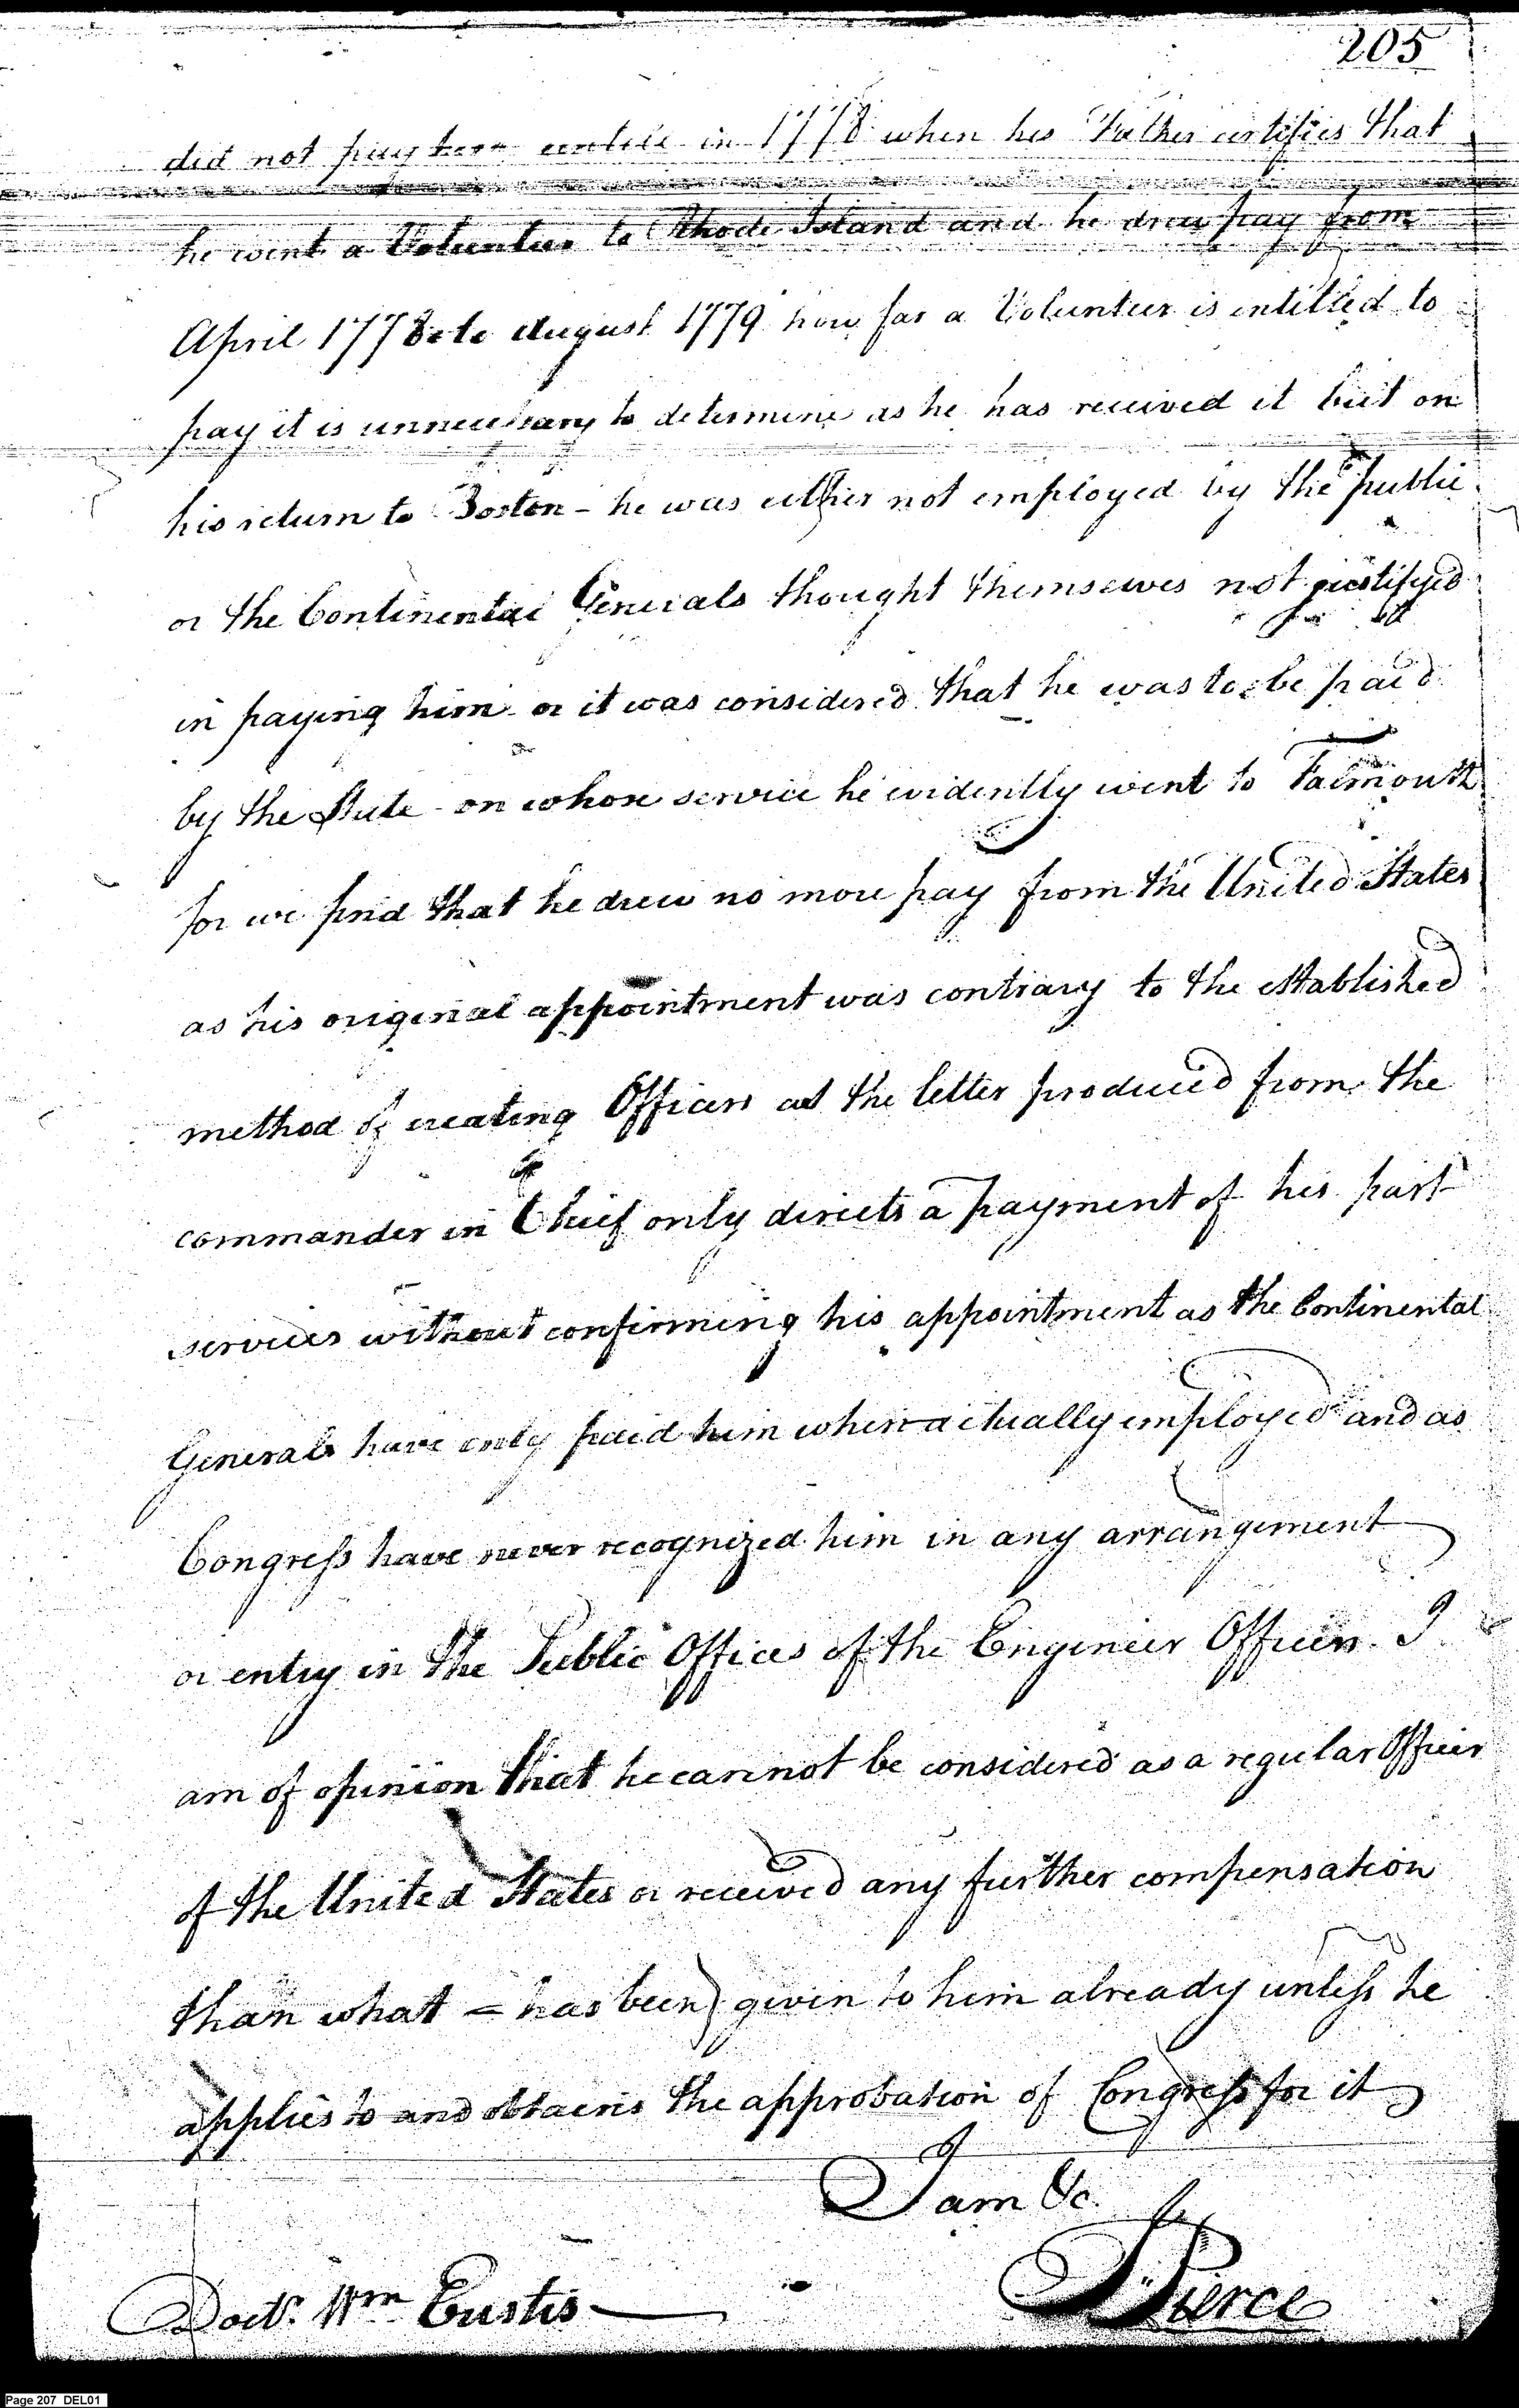 205
did not pay him untill in 1778 when his Father certifies that
he went a Volunteer to Rhode Island and he drew pay from
April 1778 to August 1779 how far a Volunteer is intitled to
pay it is unnecessary to determine as he has received it but on
his return to Boston - he was either not employed by the public
or the Continental Generals thought themselves not justifyed
in paying him or it was considered that he was to be paid
by the State - on whose service he evidently went to Falmouth
for we find that he drew no more pay from the United States
as his original appointment was contrary to the established
method of creating Officers as the letter produced from the
commander in Chief only directs a payment of his past
services without confirming his appointment as the Continental
Generals have only paid him when actually employed and as
Congress have never recognized him in any arrangement
or entry in the Public Offices of the Engineer Officers I
am of opinion that he cannot be considered as a regular Officer
of the United States or received any further compensation
than what = has been given to him already unless he
applies to and obtains the approbation of Congress for it
I am &c.
Pierce
Doctr. Wm Eustis
Page 207 DEL01